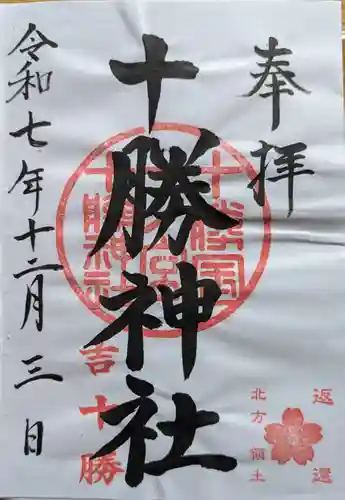 奉拝
十勝神社
令和七年十二月三日
十勝国
十勝神社
吉
十勝
返還
北方領土